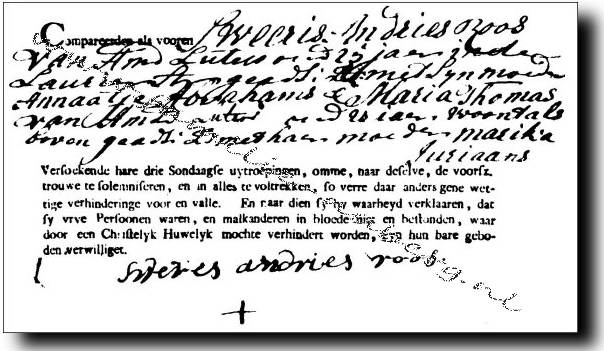 Compareerden als vooren Sweeris Andries Roos
van Amd Luters oud 31 jaer in de
Laurier geadst met syn moeder
Annaatje Abrahams & Maria Thomas
van Amd oud woont als
boven geadst met haer moeder marika
Juriaans
Versoekende hare drie Sondaagse uytroepingen, omme, naar deselve, de voorsz.
trouwe te solemniseren, en in alles te voltrekken, so verre daar anders gene wet-
tige verhinderinge voor en valle. En naar dien sy by waarheyd verklaaren, dat
sy vrye Persoonen waren, en malkanderen in bloede niet en bestonden, waar
door een Christelyk Huwelyk mochte verhindert worden, zyn hun bare gebo-
den verwilliget.
sweries andries roos